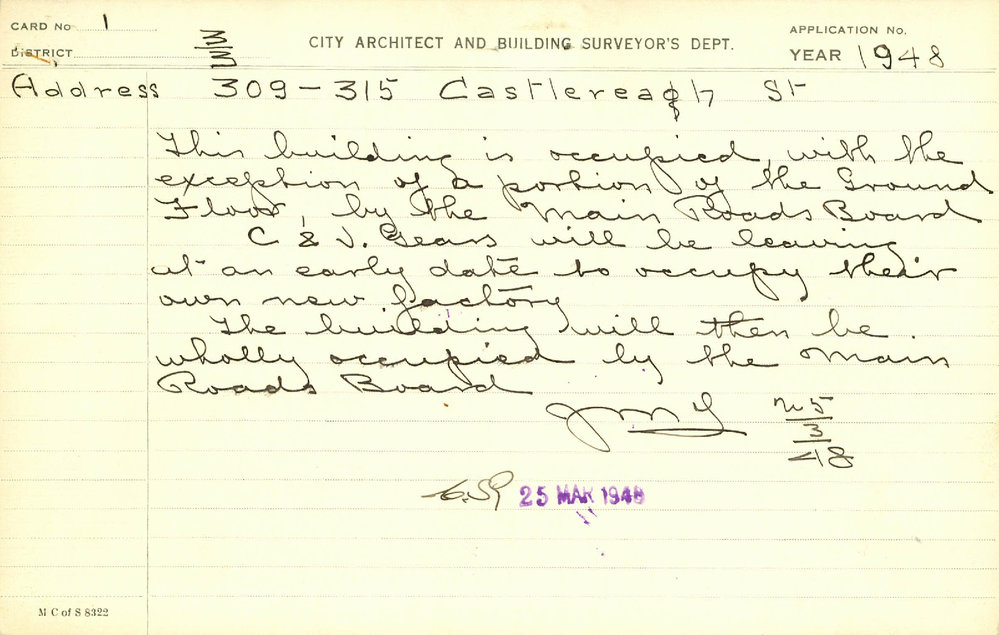 CARD No 1
DISTRICT
CITY ARCHITECT AND BUILDING SURVEYOR'S DEPT.
APPLICATION No.
YEAR 1948
Address 309-315 Castlereagh St
This building is occupied, with the
exception of a portion of the Ground
Floor, by the Main Roads Board
C & J. Gears will be leaving
at an early date to occupy their
own new factory
The building will then be
wholly occupied by the Main
Roads Board
25 MAR 1948
M C of S 8322